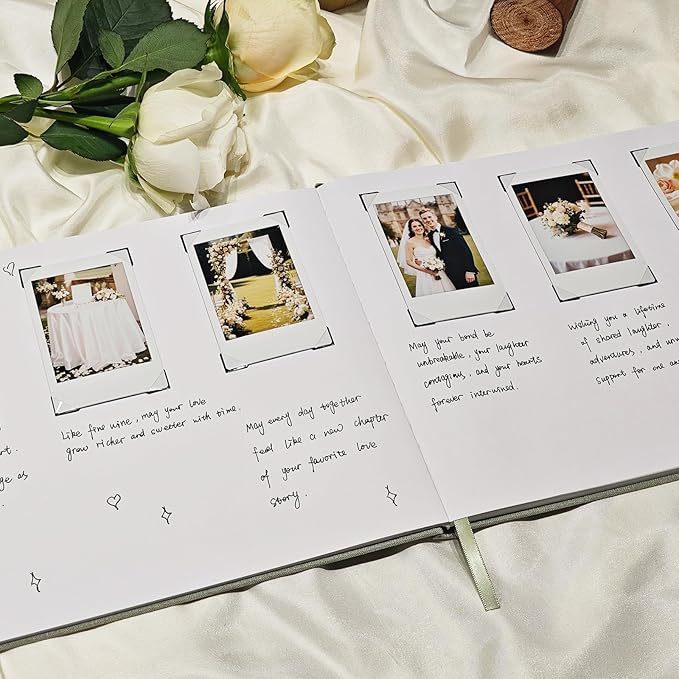 rt.
ge as
Like fine wine, may your love
grow richer and sweeter with time.
May every day together
feel like a new chapter
of your favorite love
story.
May your bond be
unbreakable, your laughter
contagious, and your hearts
forever interwined.
Wishing you a lifetime
of shared laughter,
adventures, and unw
support for one an